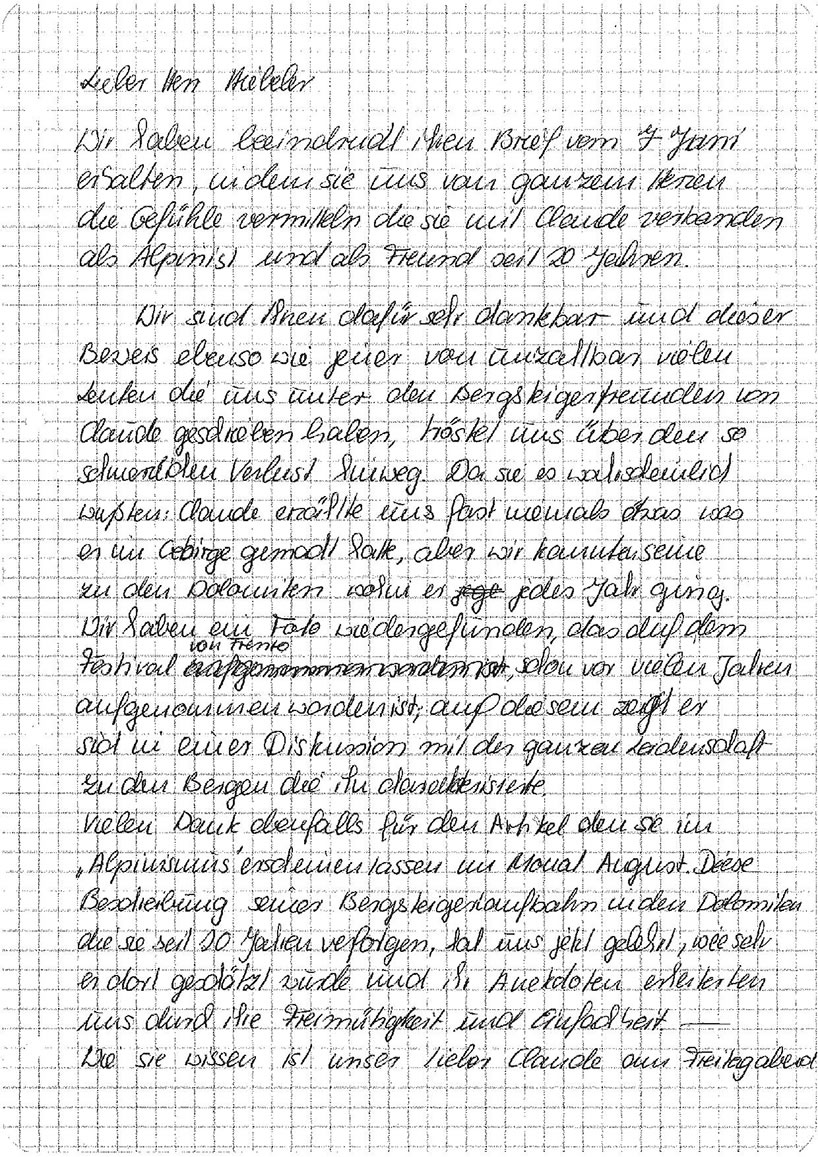 Lieber Herr Hiebeler
Wir haben beeindruckt ihren Brief vom 7 Juni
erhalten, in dem sie uns von ganzem Herzen
die Gefühle vermitteln die sie mit Claude verbanden
als Alpinist und als Freund seit 20 Jahren.
Wir sind Ihnen dafür sehr dankbar und dieser
Beweis ebenso wie jener von unzahlbar vielen
Leuten die uns unter den Bergsteigerfreunden von
Claude geschrieben haben, tröstet uns über den so
schmerzlichen Verlust hinweg. Da sie es wahrscheinlich
wußten: Claude erzählte uns fast niemals etwas was
er im Gebirge gemacht hatte, aber wir kannten seine
zu den Dolomiten wohin er jedes Jahr ging.
Wir haben ein Foto wiedergefunden, das auf dem
Festival von Trento, schon vor vielen Jahren
aufgenommen worden ist; auf diesem zeigt er
sich in einer Diskussion mit der ganzen Leidenschaft
zu den Bergen die ihn charakterisierte.
Vielen Dank ebenfalls für den Artikel den sie im
„Alpinismus" erscheinen lassen im Monat August. Diese
Beschreibung seiner Bergsteigerlaufbahn in den Dolomiten
die sie seit 20 Jahren verfolgen, hat uns jetzt gelehrt, wie sehr
er dort geschätzt wurde und ihr Anekdoten erheiterten
uns durch ihre Freimütigkeit und Einfachheit —
Wie sie wissen ist unser lieber Claude am Freitagabend